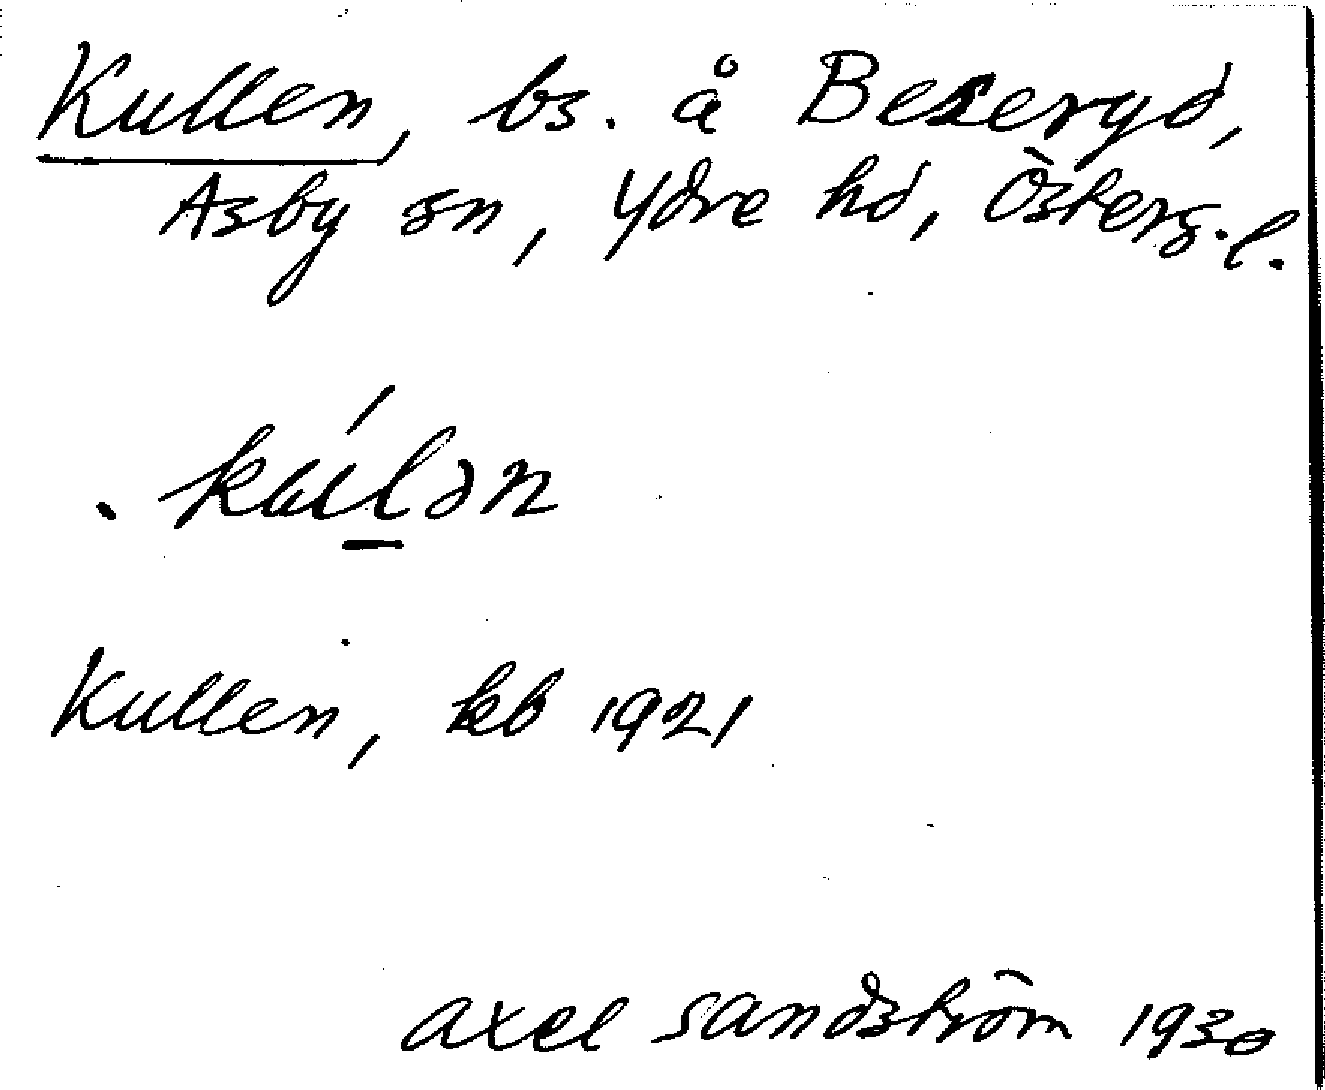 Kullen, bs. å Beseryd,
Asby sn, Ydre hd, Österg.l.
kúlən
Kullen, kb 1921
Axel Sandström 1930